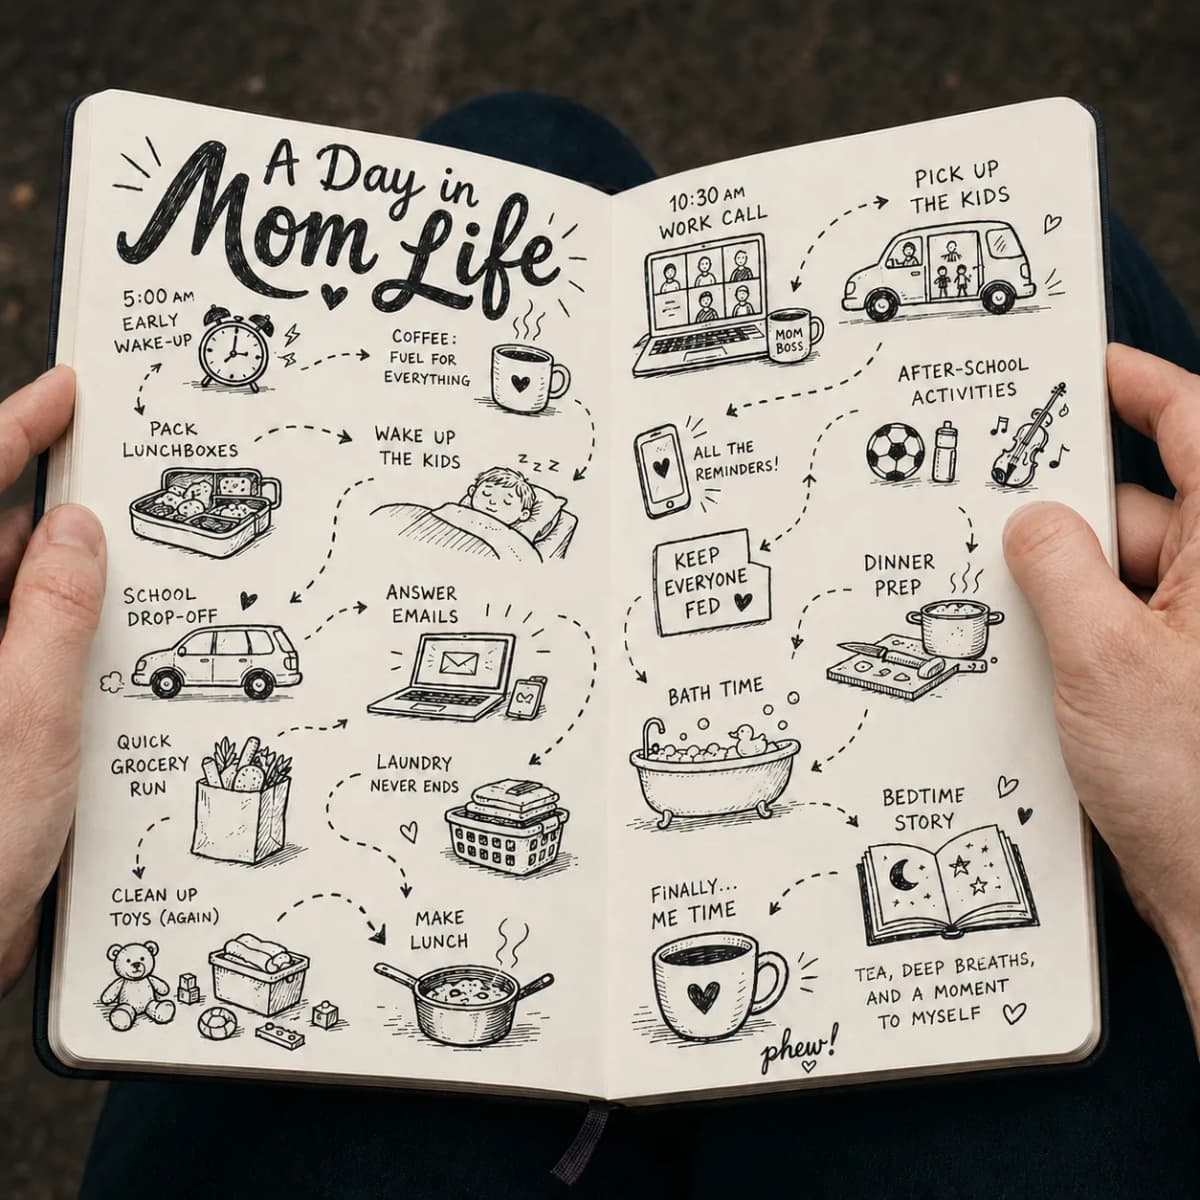 A Day in
Mom Life
5:00 AM
EARLY
WAKE-UP
COFFEE:
FUEL FOR
EVERYTHING
PACK
LUNCHBOXES
WAKE UP
THE KIDS
z z z
SCHOOL
DROP-OFF
ANSWER
EMAILS
QUICK
GROCERY
RUN
LAUNDRY
NEVER ENDS
CLEAN UP
TOYS (AGAIN)
MAKE
LUNCH
10:30 AM
WORK CALL
MOM
BOSS
PICK UP
THE KIDS
ALL THE
REMINDERS!
AFTER-SCHOOL
ACTIVITIES
KEEP
EVERYONE
FED
DINNER
PREP
BATH TIME
BEDTIME
STORY
FINALLY...
ME TIME
TEA, DEEP BREATHS,
AND A MOMENT
TO MYSELF
phew!